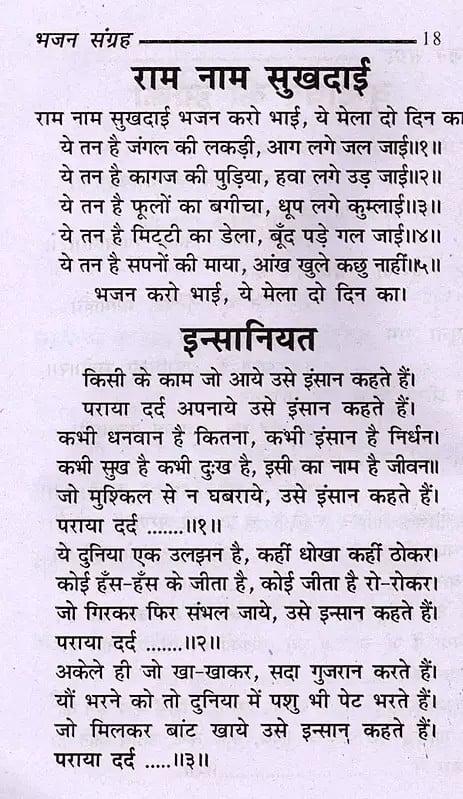 भजन संग्रह 18
राम नाम सुखदाई
राम नाम सुखदाई भजन करो भाई, ये मेला दो दिन का
ये तन है जंगल की लकड़ी, आग लगे जल जाई॥१॥
ये तन है कागज की पुड़िया, हवा लगे उड़ जाई॥२॥
ये तन है फूलों का बगीचा, धूप लगे कुम्लाई॥३॥
ये तन है मिट्टी का डेला, बूँद पड़े गल जाई॥४॥
ये तन है सपनों की माया, आंख खुले कछु नाहीं॥५॥
भजन करो भाई, ये मेला दो दिन का।
इन्सानियत
किसी के काम जो आये उसे इंसान कहते हैं।
पराया दर्द अपनाये उसे इंसान कहते हैं।
कभी धनवान है कितना, कभी इंसान है निर्धन।
कभी सुख है कभी दुःख है, इसी का नाम है जीवन॥
जो मुश्किल से न घबराये, उसे इंसान कहते हैं।
पराया दर्द .......॥१॥
ये दुनिया एक उलझन है, कहीं धोखा कहीं ठोकर।
कोई हँस-हँस के जीता है, कोई जीता है रो-रोकर।
जो गिरकर फिर संभल जाये, उसे इन्सान कहते हैं।
पराया दर्द .......॥२॥
अकेले ही जो खा-खाकर, सदा गुजरान करते हैं।
यौं भरने को तो दुनिया में पशु भी पेट भरते हैं।
जो मिलकर बांट खाये उसे इन्सान कहते हैं।
पराया दर्द .....॥३॥